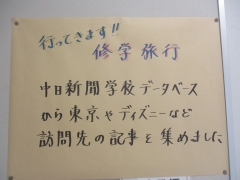 行ってきます!!
修学旅行
中日新聞学校データベース
から東京やディズニーなど
訪問先の記事を集めました